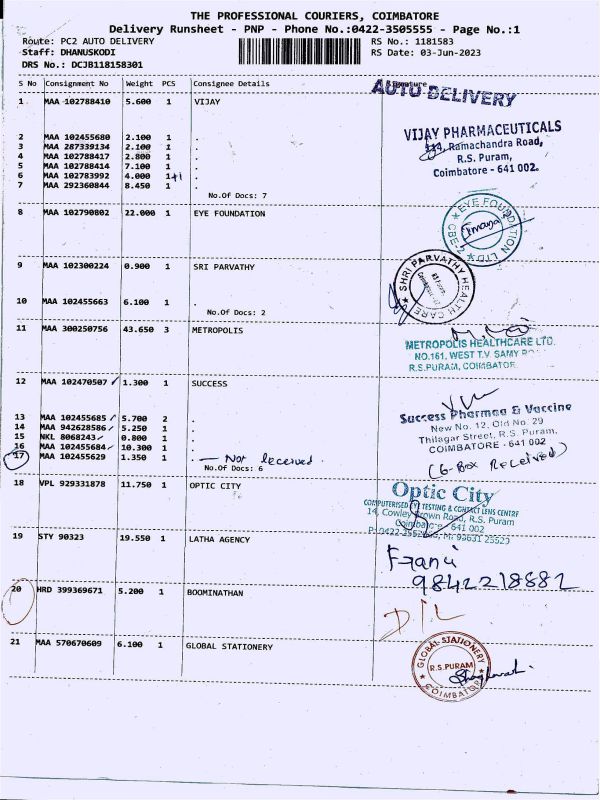 THE PROFESSIONAL COURIERS, COIMBATORE
Delivery Runsheet - PNP - Phone No.:0422-3505555 - Page No.:1
Route: PC2 AUTO DELIVERY RS No.: 1181583
Staff: DHANUSKODI RS Date: 03-Jun-2023
DRS No.: DCJB118158301
S No Consignment No Weight PCS Consignee Details Signature
AUTO DELIVERY
1 MAA 102788410 5.600 1 VIJAY
VIJAY PHARMACEUTICALS
Ramachandra Road,
R.S. Puram,
Coimbatore - 641 002.
2 MAA 102455680 2.100 1 .
3 MAA 287339134 2.100 1 .
4 MAA 102788417 2.800 1 .
5 MAA 102788414 7.100 1 .
6 MAA 102783992 4.000 1+1 .
7 MAA 292360844 8.450 1 .
No.Of Docs: 7
8 MAA 102790802 22.000 1 EYE FOUNDATION
EYE FOUNDATION LTD CBE-2
9 MAA 102300224 0.900 1 SRI PARVATHY
SHRI PARVATHY HEALTH CARE
10 MAA 102455663 6.100 1 .
No.Of Docs: 2
11 MAA 300250756 43.650 3 METROPOLIS
METROPOLIS HEALTHCARE LTD.
NO.161, WEST T.V. SAMY
R.S.PURAM, COIMBATOR
12 MAA 102470507 1.300 1 SUCCESS
Success Pharmaa & Vaccine
New No. 12, Old No. 29
Thilagar Street, R.S. Puram,
COIMBATORE - 641 002
(6-Box Received)
13 MAA 102455685 5.700 2 .
14 MAA 942628586 5.250 1 .
15 NKL 8068243 0.800 1 .
16 MAA 102455684 10.300 1 .
17 MAA 102455629 1.350 1 . — Not received.
No.Of Docs: 6
18 VPL 929331878 11.750 1 OPTIC CITY
Optic City
COMPUTERISED EYE TESTING & CONTACT LENS CENTRE
14, Cowley Brown Road, R.S. Puram
Coimbatore - 641 002
19 STY 90323 19.550 1 LATHA AGENCY
9842218882
20 HRD 399369671 5.200 1 BOOMINATHAN
D/L
21 MAA 570670609 6.100 1 GLOBAL STATIONERY
GLOBAL STATIONERY
R.S.PURAM
COIMBATORE